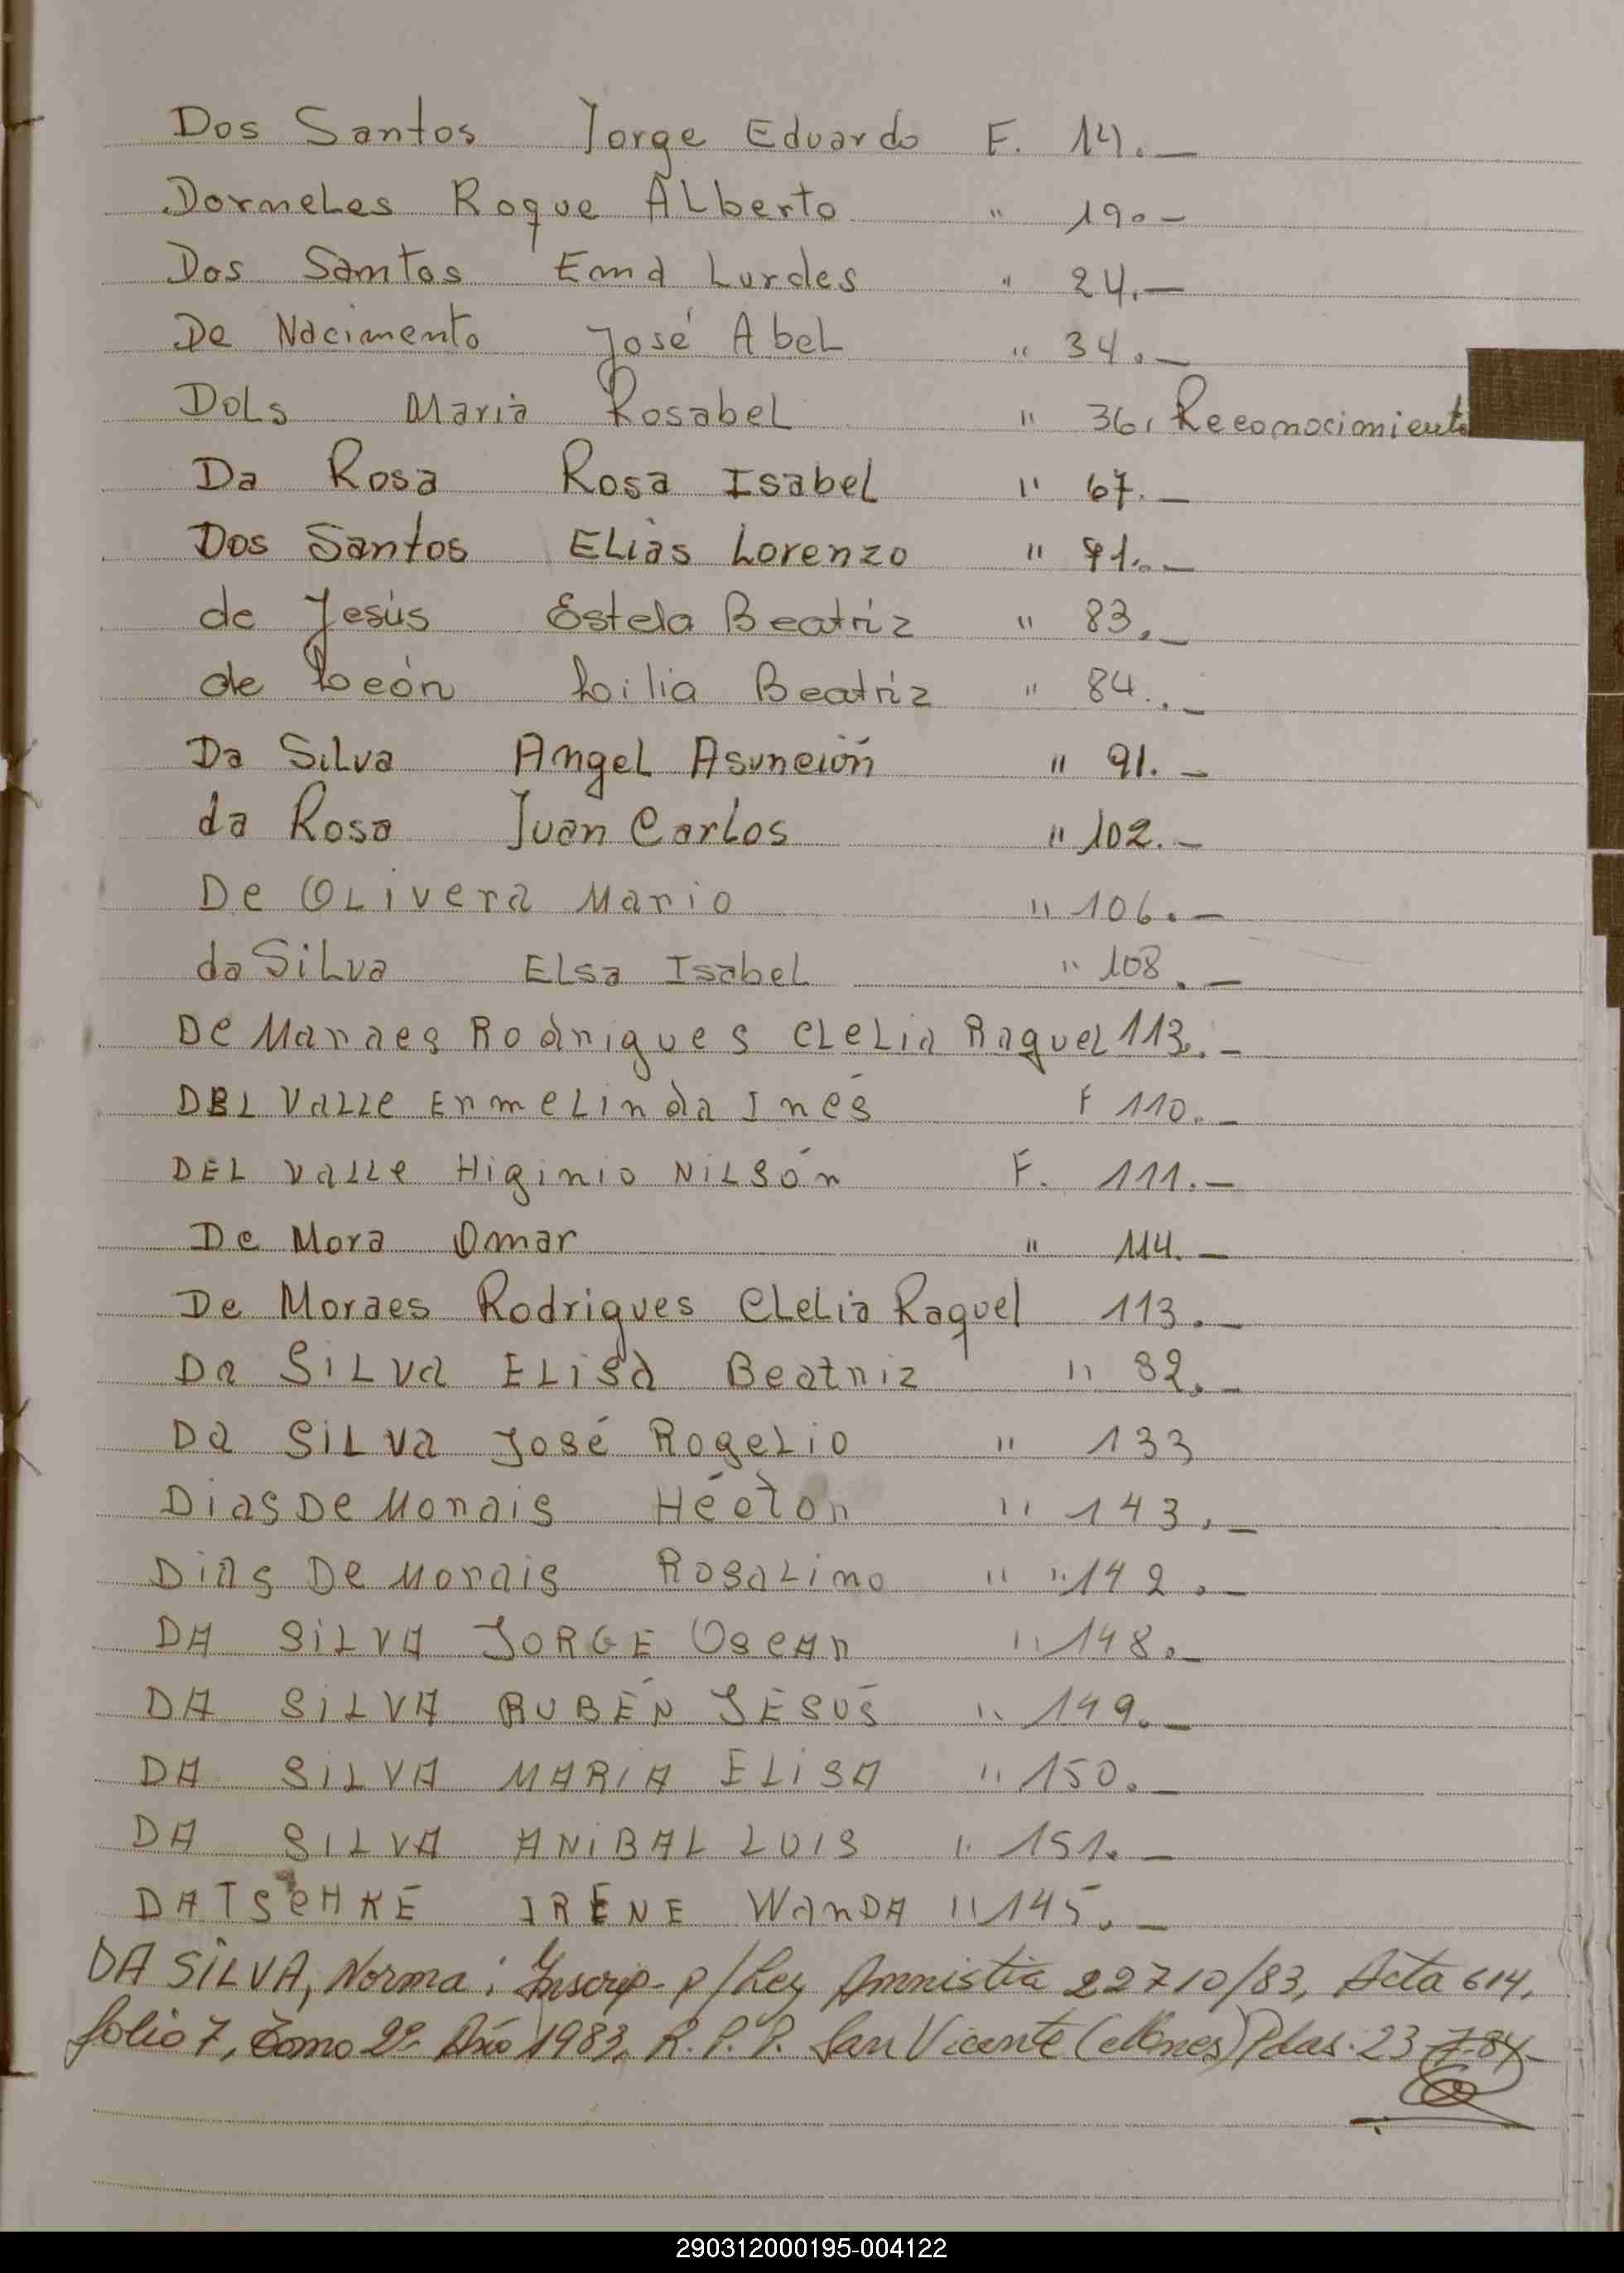 Dos Santos Jorge Eduardo F. 14.—
Dorneles Roque Alberto " 19.—
Dos Santos Ema Lurdes " 24.—
De Nacimento José Abel " 34.—
Dols Maria Rosabel " 36, Reconocimiento
Da Rosa Rosa Isabel " 67.—
Dos Santos Elias Lorenzo " 71.—
de Jesús Estela Beatriz " 83.—
de León Lilia Beatriz " 84.—
Da Silva Angel Asunción " 91.—
da Rosa Juan Carlos " 102.—
De Olivera Mario " 106.—
da Silva Elsa Isabel " 108.—
De Moraes Rodrigues Clelia Raquel 113.—
DEL Valle Ermelinda Inés F 110.—
DEL Valle Higinio Nilsón F. 111.—
De Mora Omar " 114.—
De Moraes Rodrigues Clelia Raquel 113.—
Da Silva Elisa Beatriz " 82.—
Da Silva José Rogelio " 133
Dias De Morais Héctor " 143.—
Dias De Morais Rosalino " " 142.—
DA SILVA JORGE Oscar " 148.—
DA SILVA RUBÉN JESÚS " 149.—
DA SILVA MARIA ELISA " 150.—
DA SILVA ANIBAL LUIS " 151.—
DATSCHKE IRENE WANDA " 145.—
DA SILVA, Norma: Inscrip- p/Ley Amnistia 22710/83, Acta 614,
folio 7, Tomo 2º Año 1983, R.P.P. San Vicente (Mnes) Pdas. 23-7-84-
290312000195-004122